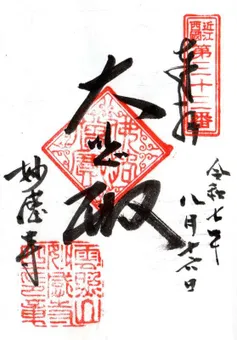 近江
西国
第三十三番
奉拝
令和七年
八月十六日
大悲殿
妙感寺